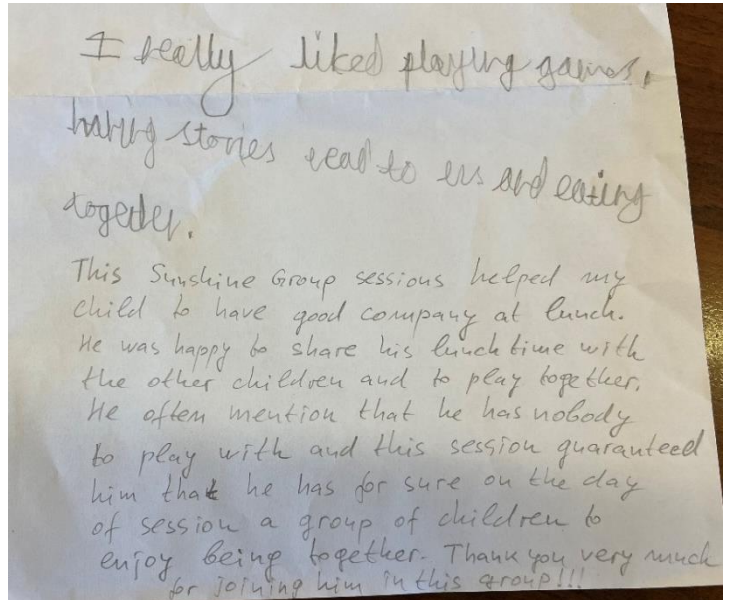 I really liked playing games,
having stories read to us and eating
together.
This Sunshine Group sessions helped my
child to have good company at lunch.
He was happy to share his lunch time with
the other children and to play together.
He often mention that he has nobody
to play with and this session guaranteed
him that he has for sure on the day
of session a group of children to
enjoy being together. Thank you very much
for joining him in this group!!!